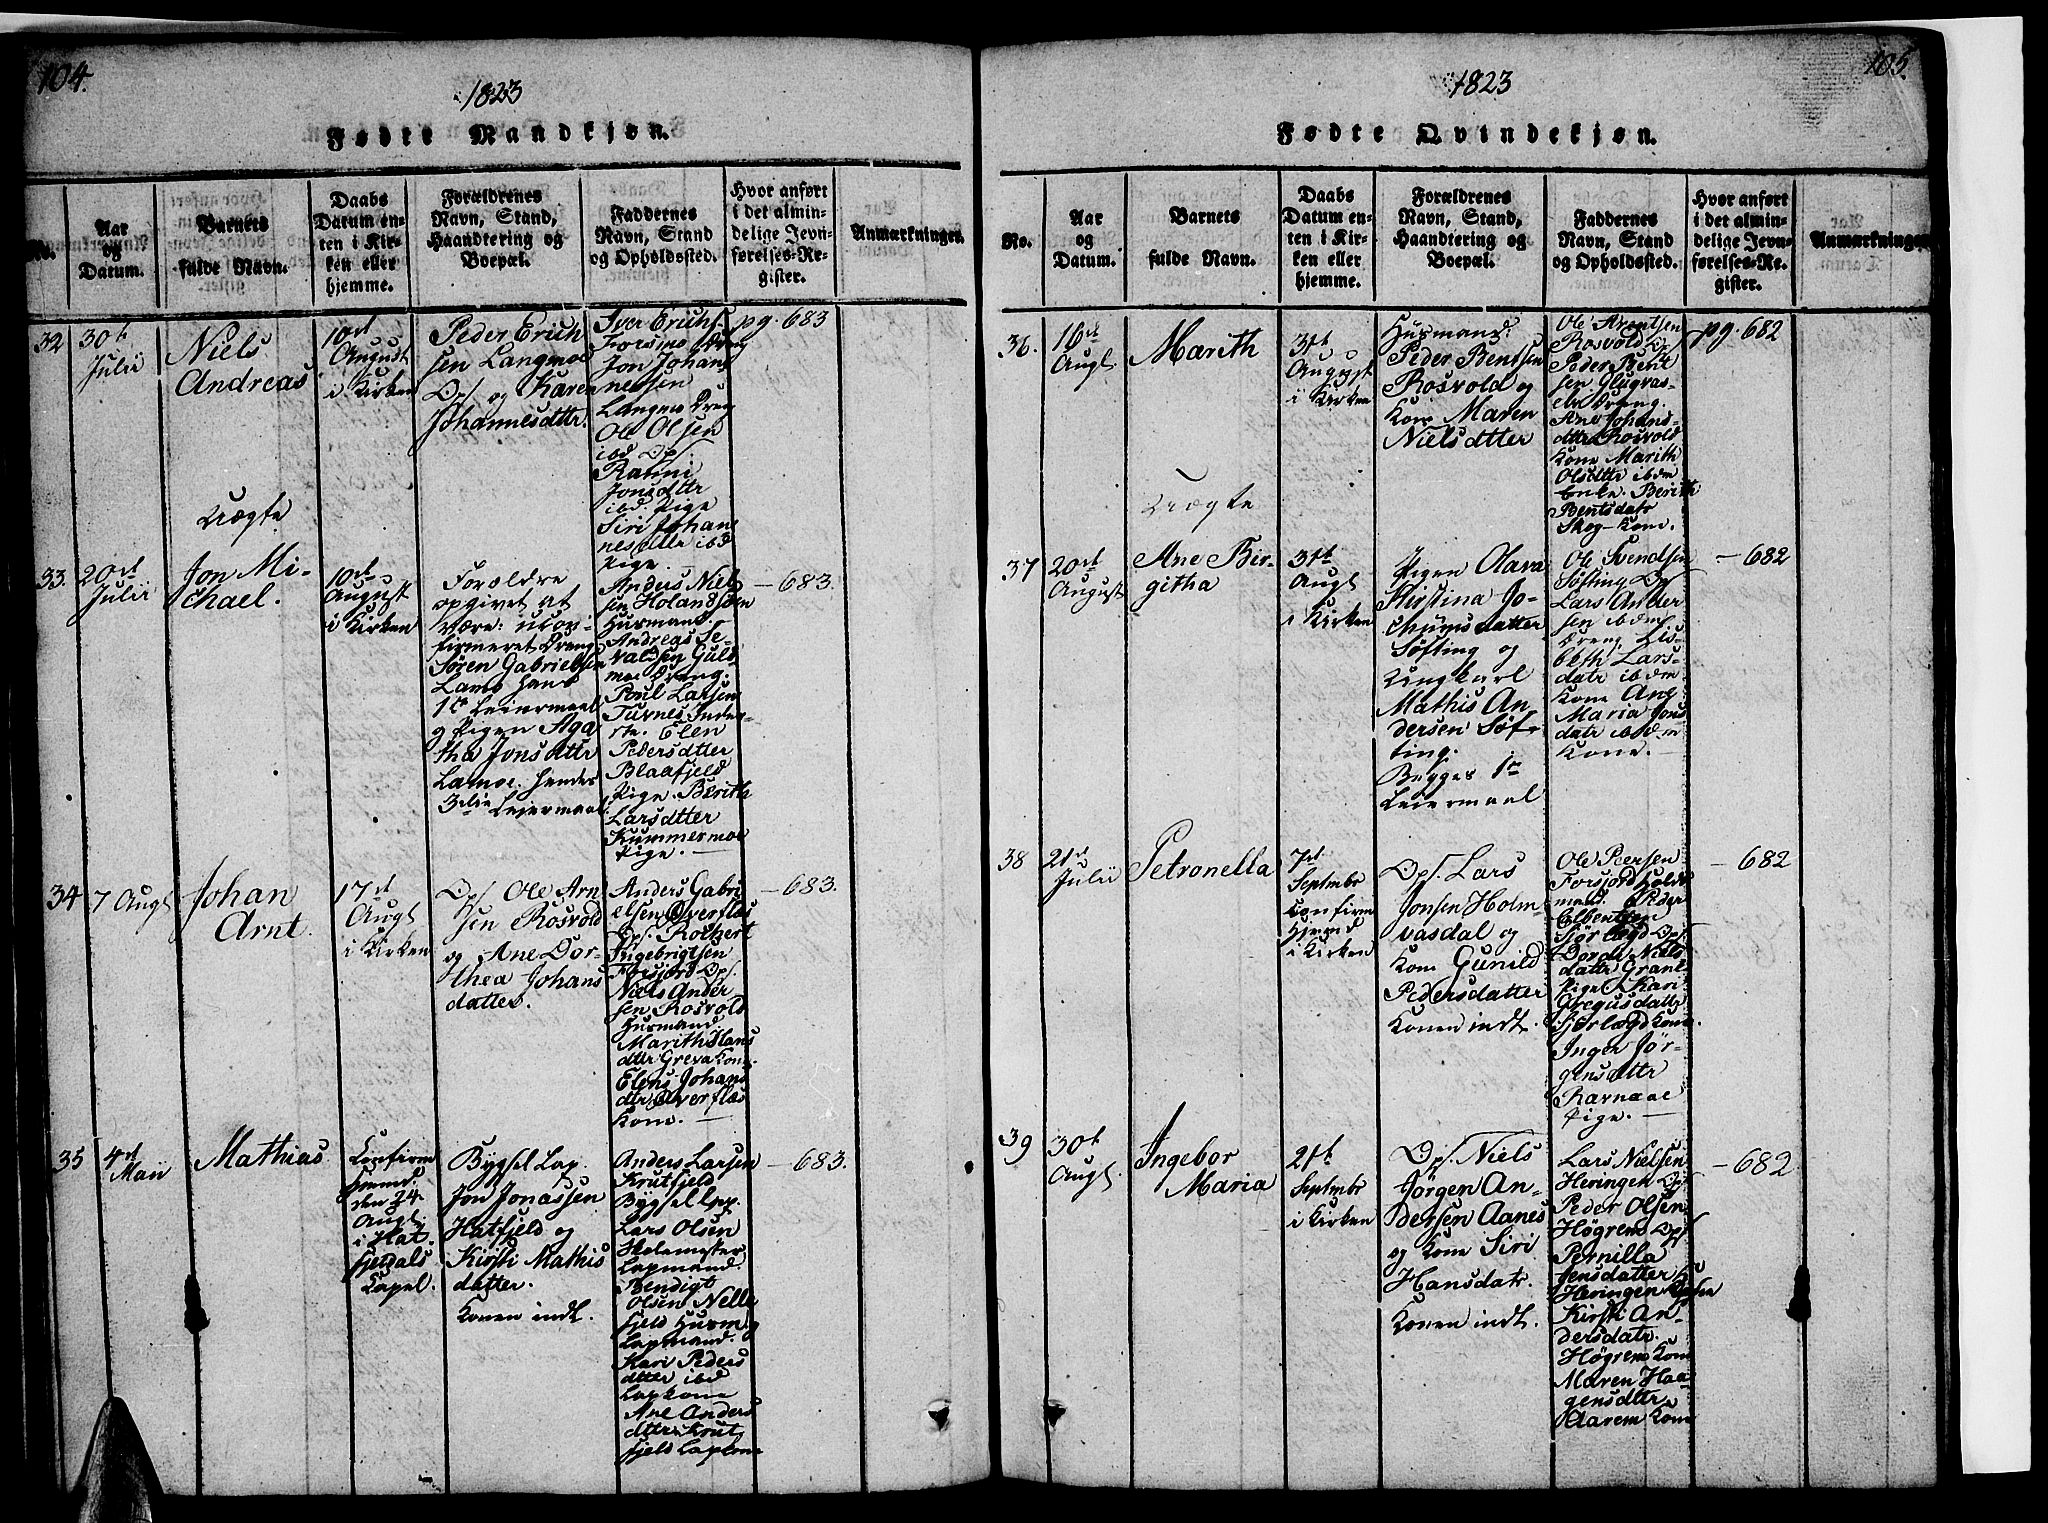 104.
1823
Fødte Mandkjøn.
No.
Aar
og
Datum.
Barnets
fulde Navn.
Daabs
Datum en-
ten i Kir-
ken eller
hjemme.
Forældrenes
Navn, Stand,
Haandtering og
Boepæl.
Faddernes
Navn, Stand
og Opholdssted.
Hvor anført
i det almin-
delige Jevn-
førelses-Re-
gister.
Anmærkninger.
32
30t
Julii
Niels
Andreas
10de
August
i Kirken
Peder Erich
sen Langmoe
Ops og Karen
Johannesdttr.
Iver Erichs.
Forsmo Dreng
Jon Johan
nessen
Langmo Dreng
Ole Olsen
ibd Ops.
Ranni
Jonsdttr
ibd. Pige
Siri Johan
nesdttr ibd
Pige.
pg. 683
Uægte
33.
20de
Julii
Jon Mi-
chael.
10de
August
i Kirken
Foroldre
opgivet at
være: ucon-
firmeret Dreng
Søren Gabrielsen
Lamo hans
1te Leiermaal
og Pigen Aga
tha Jonsdttr
Lamoe. hendes
3die Leiermaal
Anders Niel
sen Holandsøen
Huusmand.
Andreas Se-
valdsen Guld
moe Dreng.
Poul Larsen
Turnes Inder-
ste. Elen
Pedersdtter
Blaafjeld
Pige. Berith
Larsdtter
Kummermoe
Pige. —
— 683.
34
7 Augt
Johan
Arnt.
17de
Augt
i Kirken
Ops. Ole Arn
sen Rosvold
og Ane Dor-
thea Johans
datter.
Anders Gabri
elsen Øverflæs
Ops. Rochert
Ingebrigtsen
Forsjord Ops.
Niels Ander
sen Rosvold
Huusmand
Marith Hans
dtter Greva Kone
Elens Johans
dtr Øverflæs
Kone. —
— 683.
35
4de
Maii
Mathias
Confirm
hjemd.
den 24
Augt.
i Hat
fjeldals
Capel.
Bygsel Lap.
Jon Jonassen
Hatfjeld og
Kirsti Mathis
datter.
Konen indt.
Anders Larsen
Krutfjeld
Bygsel Lap.
Lars Olsen
Skolemester
Lapmand.
Bendigt
Olsen Nelle
fjeld Huusm. og
Lapmand.
Kari Peders
dtter ibd
Lapkone
Ane Anders
dtter Krut
fjeld Lapkone
— 683.
105.
1823
Fødte Qvindekjøn.
No.
Aar
og
Datum.
Barnets
fulde Navn.
Daabs
Datum en-
ten i Kir-
ken eller
hjemme.
Forældrenes
Navn, Stand,
Haandtering og
Boepæl.
Faddernes
Navn, Stand
og Opholdssted.
Hvor anført
i det almin-
delige Jevn-
førelses-Re-
gister.
Anmærkninger
36.
16de
Augt
Marith
31t
August
i Kirken
Huusmand:
Peder Bentsen
Rosvold og
Kone Maren
Nielsdtter
Ole Arentsen
Rosvold Ops
Peder Bent
sen Glugvas-
elv Dreng.
Ane Johans-
dttr Rosvold
Kone Marith
Olsdttr ibdm
Enke. Berith
Bentsdatr
Skog - Kone.
pg. 682
Uægte
37
20de
August
Ane Bir-
githa
31t
Augt
i Kirken
Pigen Olava
Kirstina Jo-
chumsdatter
Søfting og
Ungkarl
Mathis An
dersen Søf-
ting.
Begges 1te
Leiermaal
Ole Svendsen
Søfting Ops
Lars Ander
sen ibdm
Dreng Lis-
beth Lars-
datr ibdm
Kone Ane
Maria Jons
datr ibdm
Kone. —
— 682
38
21de
Julii
Petronella
7de
Septmbr
Confirm
hjemd
i Kirken
Ops. Lars
Jonsen Holm-
vasdal og
Kone Gunild
Pedersdatter
Konen indt.
Ole Peersen
Forsjord Huus
mand. Peder
Elbertsen
Fjørlægd Ops
Dorde Niels
datter Grane
Pige Kari
Gregusdattr
Fjørlægd Kone.
Inger Jør-
gensdttr
Ravnaae
Pige. —
— 682
39
30t
Augt.
Ingebor
Maria
21t
Septmbr
i Kirken
Ops. Niels
Jørgen An-
dersen Aanes
og Kone Siri
Hansdatr.
Konen indt.
Lars Nielsen
Heringen Ops
Peder Olsen
Högrem Ops
Pernilla
Jensdatter
Heringen Kone
Kirsti An-
dersdatr.
Högrem Kone
Maren Haa-
gensdttr
Aarem Kone
— 682